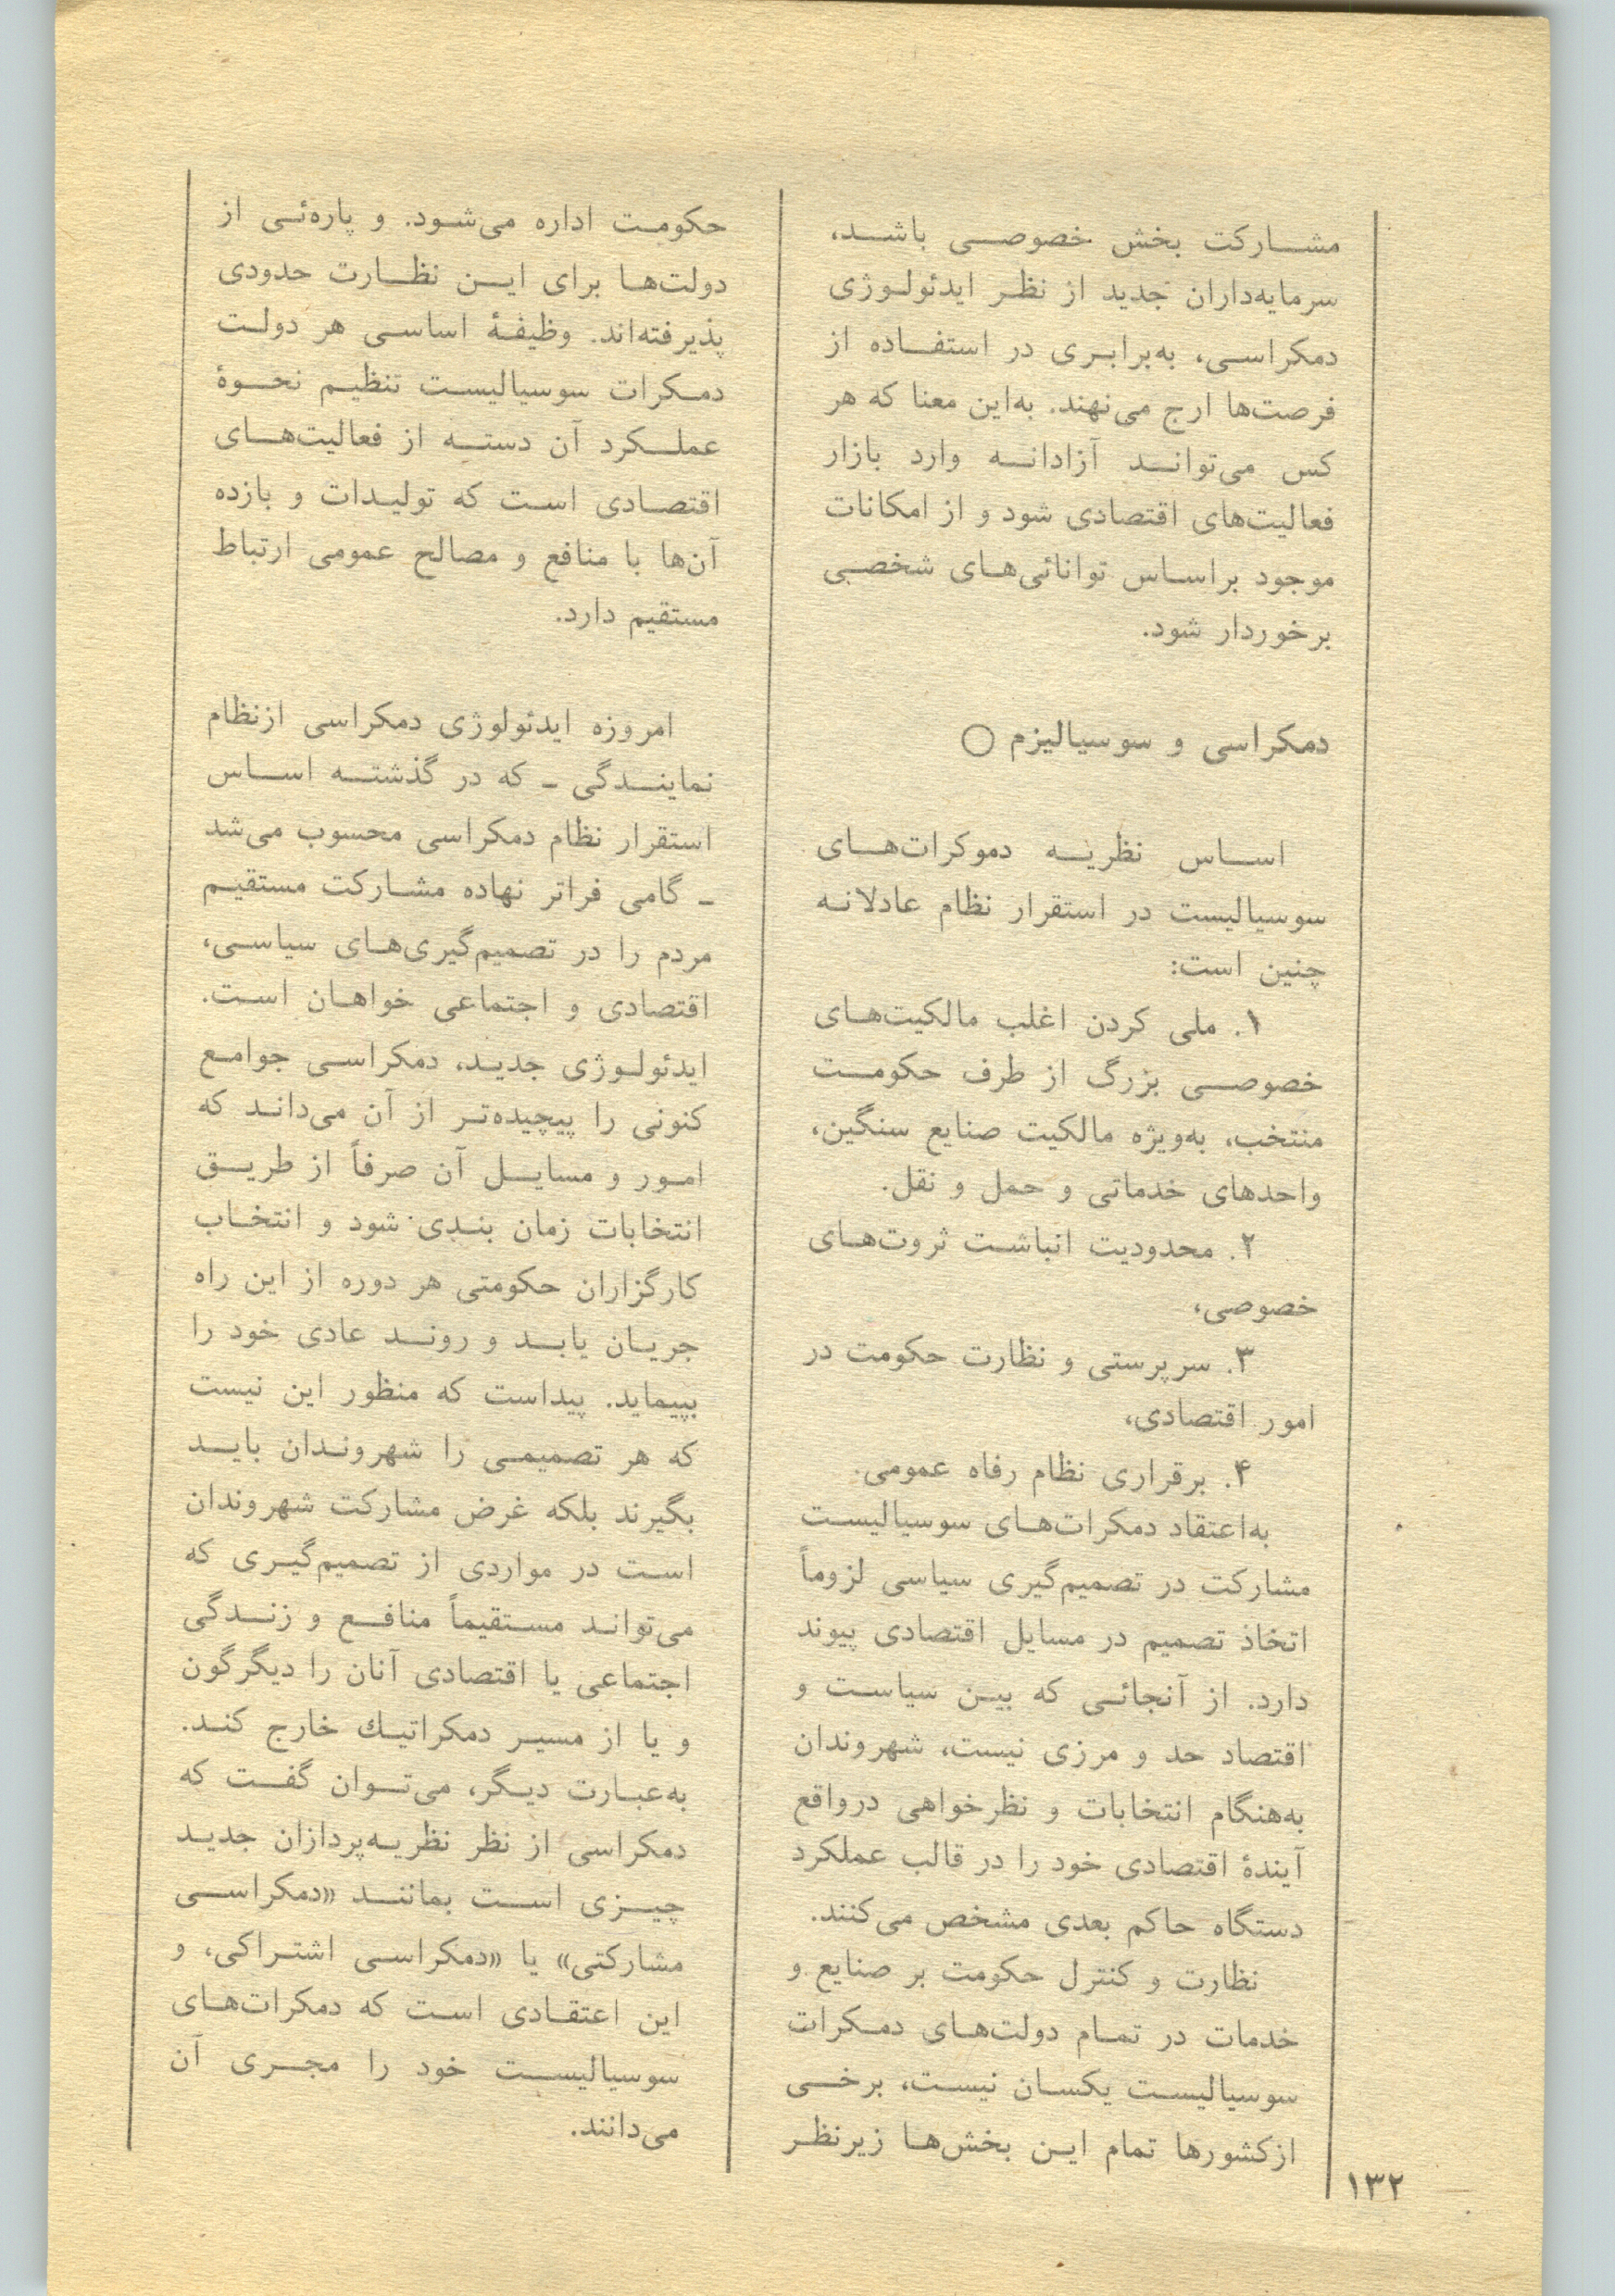 مشارکت بخش خصوصی باشد،
سرمایه‌داران جدید از نظر ایدئولوژی
دمکراسی، به‌برابری در استفاده از
فرصت‌ها ارج می‌نهند. به‌این معنا که هر
کس می‌تواند آزادانه وارد بازار
فعالیت‌های اقتصادی شود و از امکانات
موجود براساس توانائی‌های شخصی
برخوردار شود.
دمکراسی و سوسیالیزم ○
اساس نظریه دموکرات‌های
سوسیالیست در استقرار نظام عادلانه
چنین است:
۱. ملی کردن اغلب مالکیت‌های
خصوصی بزرگ از طرف حکومت
منتخب، به‌ویژه مالکیت صنایع سنگین،
واحدهای خدماتی و حمل و نقل.
۲. محدودیت انباشت ثروت‌های
خصوصی،
۳. سرپرستی و نظارت حکومت در
امور اقتصادی،
۴. برقراری نظام رفاه عمومی.
به‌اعتقاد دمکرات‌های سوسیالیست
مشارکت در تصمیم‌گیری سیاسی لزوماً
اتخاذ تصمیم در مسایل اقتصادی پیوند
دارد. از آنجائی که بین سیاست و
اقتصاد حد و مرزی نیست، شهروندان
به‌هنگام انتخابات و نظرخواهی درواقع
آیندهٔ اقتصادی خود را در قالب عملکرد
دستگاه حاکم بعدی مشخص می‌کنند.
نظارت و کنترل حکومت بر صنایع و
خدمات در تمام دولت‌های دمکرات
سوسیالیست یکسان نیست، برخی
ازکشورها تمام این بخش‌ها زیرنظر
حکومت اداره می‌شود. و پاره‌ئی از
دولت‌ها برای این نظارت حدودی
پذیرفته‌اند. وظیفهٔ اساسی هر دولت
دمکرات سوسیالیست تنظیم نحوهٔ
عملکرد آن دسته از فعالیت‌های
اقتصادی است که تولیدات و بازده
آن‌ها با منافع و مصالح عمومی ارتباط
مستقیم دارد.
امروزه ایدئولوژی دمکراسی ازنظام
نمایندگی ـ که در گذشته اساس
استقرار نظام دمکراسی محسوب می‌شد
ـ گامی فراتر نهاده مشارکت مستقیم
مردم را در تصمیم‌گیری‌های سیاسی،
اقتصادی و اجتماعی خواهان است.
ایدئولوژی جدید، دمکراسی جوامع
کنونی را پیچیده‌تر از آن می‌داند که
امور و مسایل آن صرفاً از طریق
انتخابات زمان بندی شود و انتخاب
کارگزاران حکومتی هر دوره از این راه
جریان یابد و روند عادی خود را
بپیماید. پیداست که منظور این نیست
که هر تصمیمی را شهروندان باید
بگیرند بلکه غرض مشارکت شهروندان
است در مواردی از تصمیم‌گیری که
می‌تواند مستقیماً منافع و زندگی
اجتماعی یا اقتصادی آنان را دیگرگون
و یا از مسیر دمکراتیك خارج کند.
به‌عبارت دیگر، می‌توان گفت که
دمکراسی از نظر نظریه‌پردازان جدید
چیزی است بمانند «دمکراسی
مشارکتی» یا «دمکراسی اشتراکی، و
این اعتقادی است که دمکرات‌های
سوسیالیست خود را مجری آن
می‌دانند.
۱۳۲